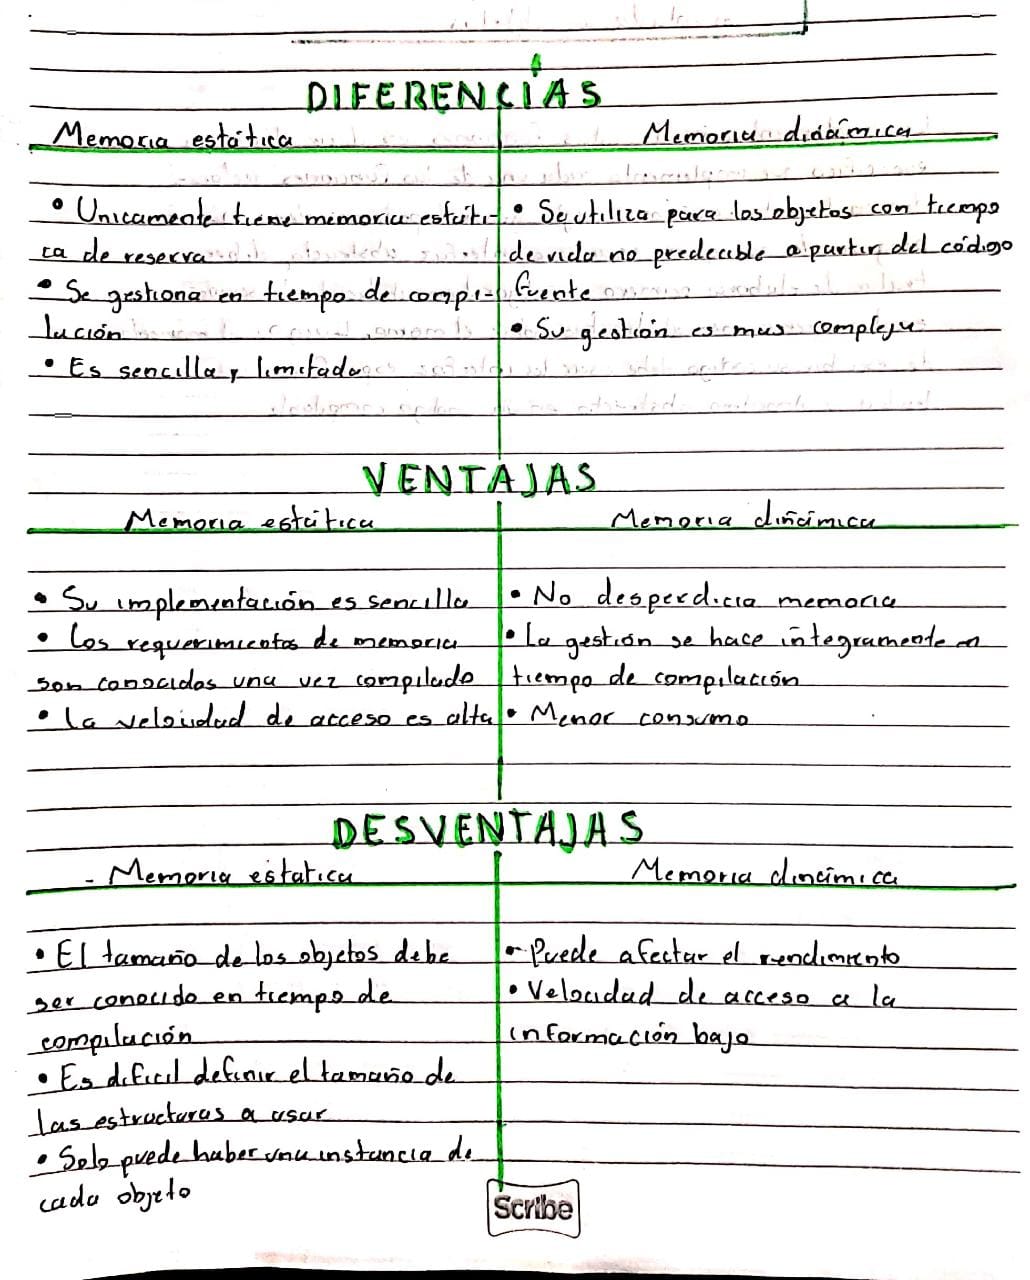 DIFERENCIAS
Memoria estática
Memoria dinámica
• Unicamente tiene memoria estáti-
ca de reserva
• Se gestiona en tiempo de compi-
lución
• Es sencilla y limitada
• Se utiliza para los objetos con tiempo
de vida no predecible a partir del código
fuente
• Su gestión es mas compleja
VENTAJAS
Memoria estática
Memoria dinámica
• Su implementación es sencilla
• Los requerimientos de memoria
son conocidos una vez compilado
• La velocidad de acceso es alta
• No desperdicia memoria
• La gestión se hace integramente en
tiempo de compilación
• Menor consumo
DESVENTAJAS
- Memoria estatica
Memoria dinámica
• El tamaño de los objetos debe
ser conocido en tiempo de
compilación
• Es dificil definir el tamaño de
las estructuras a usar
• Solo puede haber una instancia de
cada objeto
• Puede afectar el rendimiento
• Velocidad de acceso a la
información bajo
Scribe